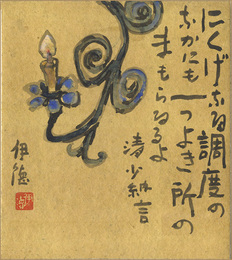 にくげなる調度の
なかにも一つよき所の
まもらるるよ
清少納言